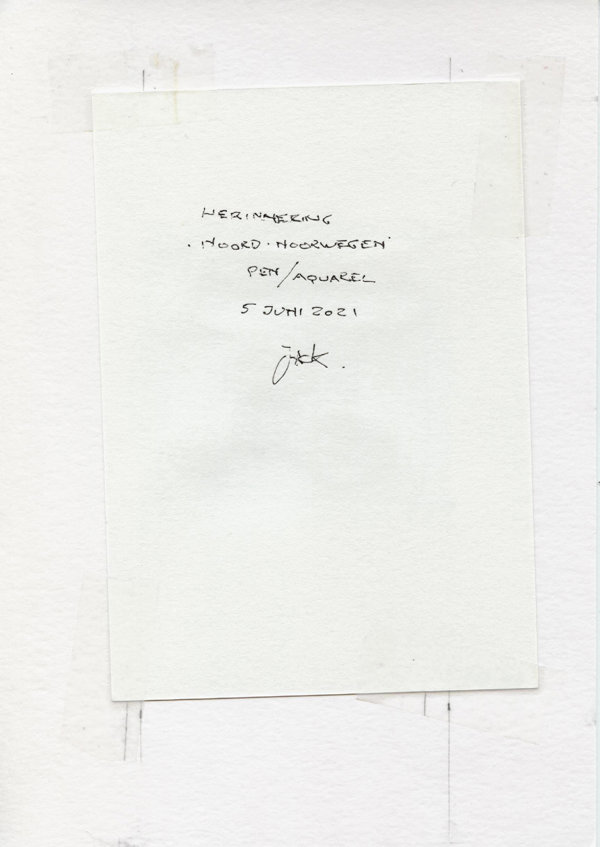 HERINNERING
. NOORD-NOORWEGEN
PEN/AQUAREL
5 JUNI 2021